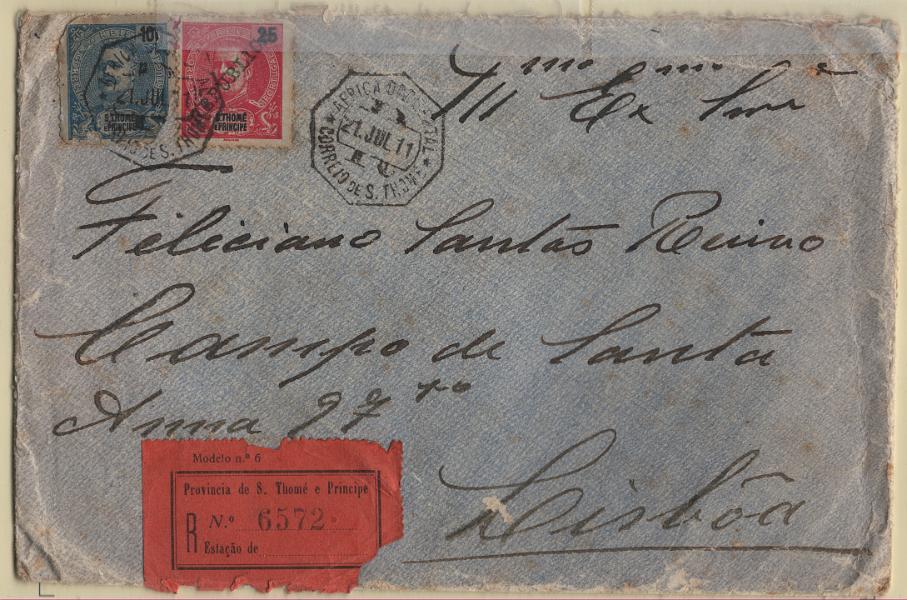 10
25
S. THOMÉ
E PRINCIPE
21 JUL
REPUBLICA
S. THOMÉ
E PRINCIPE
AFRICA OCCIDENTAL
21. JUL 11
CORREIO DE S. THOMÉ
Ill.mo Ex.mo Snr.
Feliciano Santos
Campo de Santa
Anna 97
Lisbôa
Modelo n.º 6
Provincia de S. Thomé e Principe
R N.º 6572
Estação de